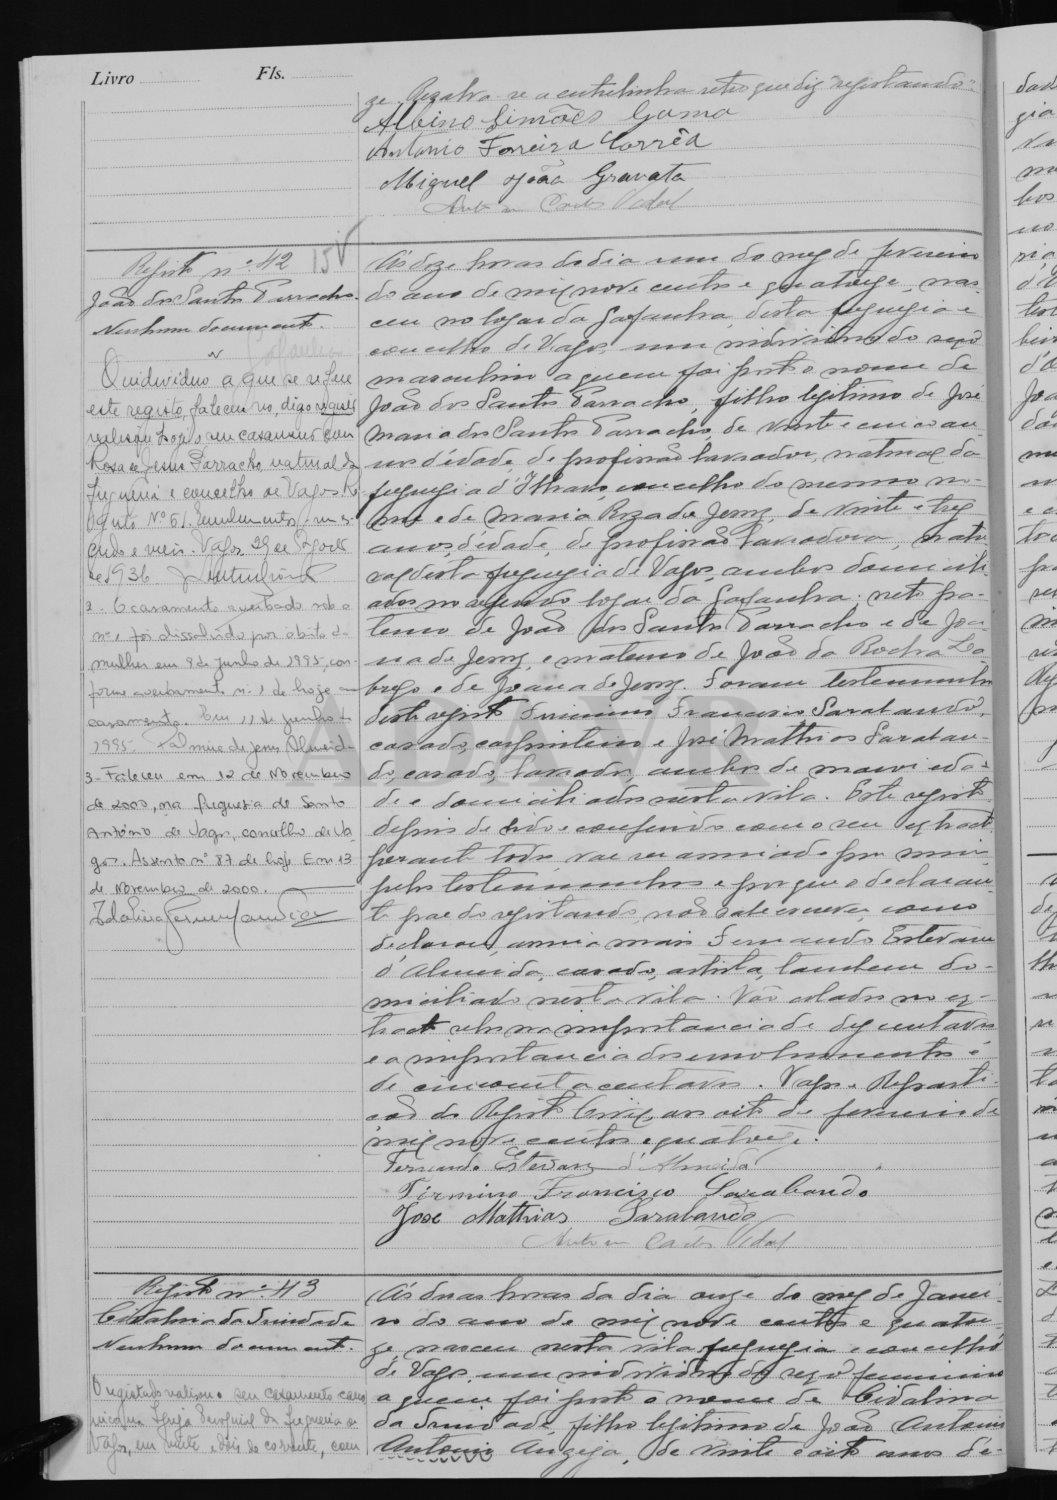 Livro Fls.
ze. Resalva-se a entrelinha retro que diz "registando".
Albino Simões Gama
Antonio Ferreira Corrêa
Miguel João Gravata
Antonio Carlos Vidal
Registo nº 42 15
João dos Santos Parracho.
Nenhum documento.
O individuo a que se refere
este registo, faleceu no, digo
realisou hoje o seu casamento com
Rosa de Jesus Parracho, natural da
freguesia e concelho de Vagos. Re
gisto Nº 61. Emolumentos: um es
cudo e meio. Vagos, 29 de
de 1936
2. O casamento averbado sob o
nº 1 foi dissolvido por óbito da
mulher em 9 de Junho de 1995, con-
forme averbamento n. 1 de hoje ao
casamento. Em 11 de Junho de
1995. de Jesus Almeida
3- Faleceu em 12 de Novembro
de 2000, na freguesia de Santo
António de Vagos, concelho de Va
gos. Assento nº 87 de hoje. Em 13
de Novembro de 2000.
Ás doze horas do dia um do mez de fevereiro
do ano de mil nove centos e quatorze, nas-
ceu no logar da Gafanha, desta freguezia e
concelho de Vagos, um individuo do sexo
masculino a quem foi posto o nome de
João dos Santos Parracho, filho legitimo de José
Maria dos Santos Parracho, de vinte e cinco an-
nos d'edade, de profissão lavrador, natural da
freguezia d'Ilhavo, concelho do mesmo no-
me e de Maria Roza de Jesus, de vinte e trez
anos d'edade, de profissão lavradora, natu-
ral desta freguezia de Vagos, ambos domicili-
ados no referido logar da Gafanha; neto pa-
terno de João dos Santos Parracho e de Joa-
na de Jesus, e materno de João da Rocha Lo-
brego e de Joana de Jesus. Foram testemunhas
deste registo Firmino Francisco Sarabando,
casado, carpinteiro e José Mathias Saraban-
do, casado, lavrador, ambos de maior eda-
de e domiciliados nesta vila. Este registo
depois de lido e conferido com o seu extracto
perante todos vae ser assinado por mim
pelas testemunhas e porque o declaran-
te pae do registando, não sabe escrever, como
declarou, assina mais Fernando Estevam
d'Almeida, casado, artista, tambem do-
miciliado nesta vila. Vão colados no ex-
tracto selos na importancia de dez centavos
e a importancia dos emolumentos é
de cincoenta centavos. Vagos e Reparti-
ção do Registo Civil aos oito de fevereiro de
mil nove centos e quatorze.
Fernando Estevam d'Almeida
Firmino Francisco Sarabando
José Mathias Sarabando
Antonio Carlos Vidal
Registo nº 43
Cidalina da Trindade
Nenhum documento.
O registado realizou o seu casamento cano
nico na Igreja Paroquial da freguesia de
Vagos, em vinte e dois do corrente, com
Ás duas horas da dia onze do mez de Janei-
ro do ano de mil nove centos e quator-
ze nasceu nesta vila freguezia e concelho
de Vagos, um individuo do sexo feminino
a quem foi posto o nome de Cidalina
da Trindade, filho legitimo de João Antonio
Antonio de vinte e oito anos d'e-